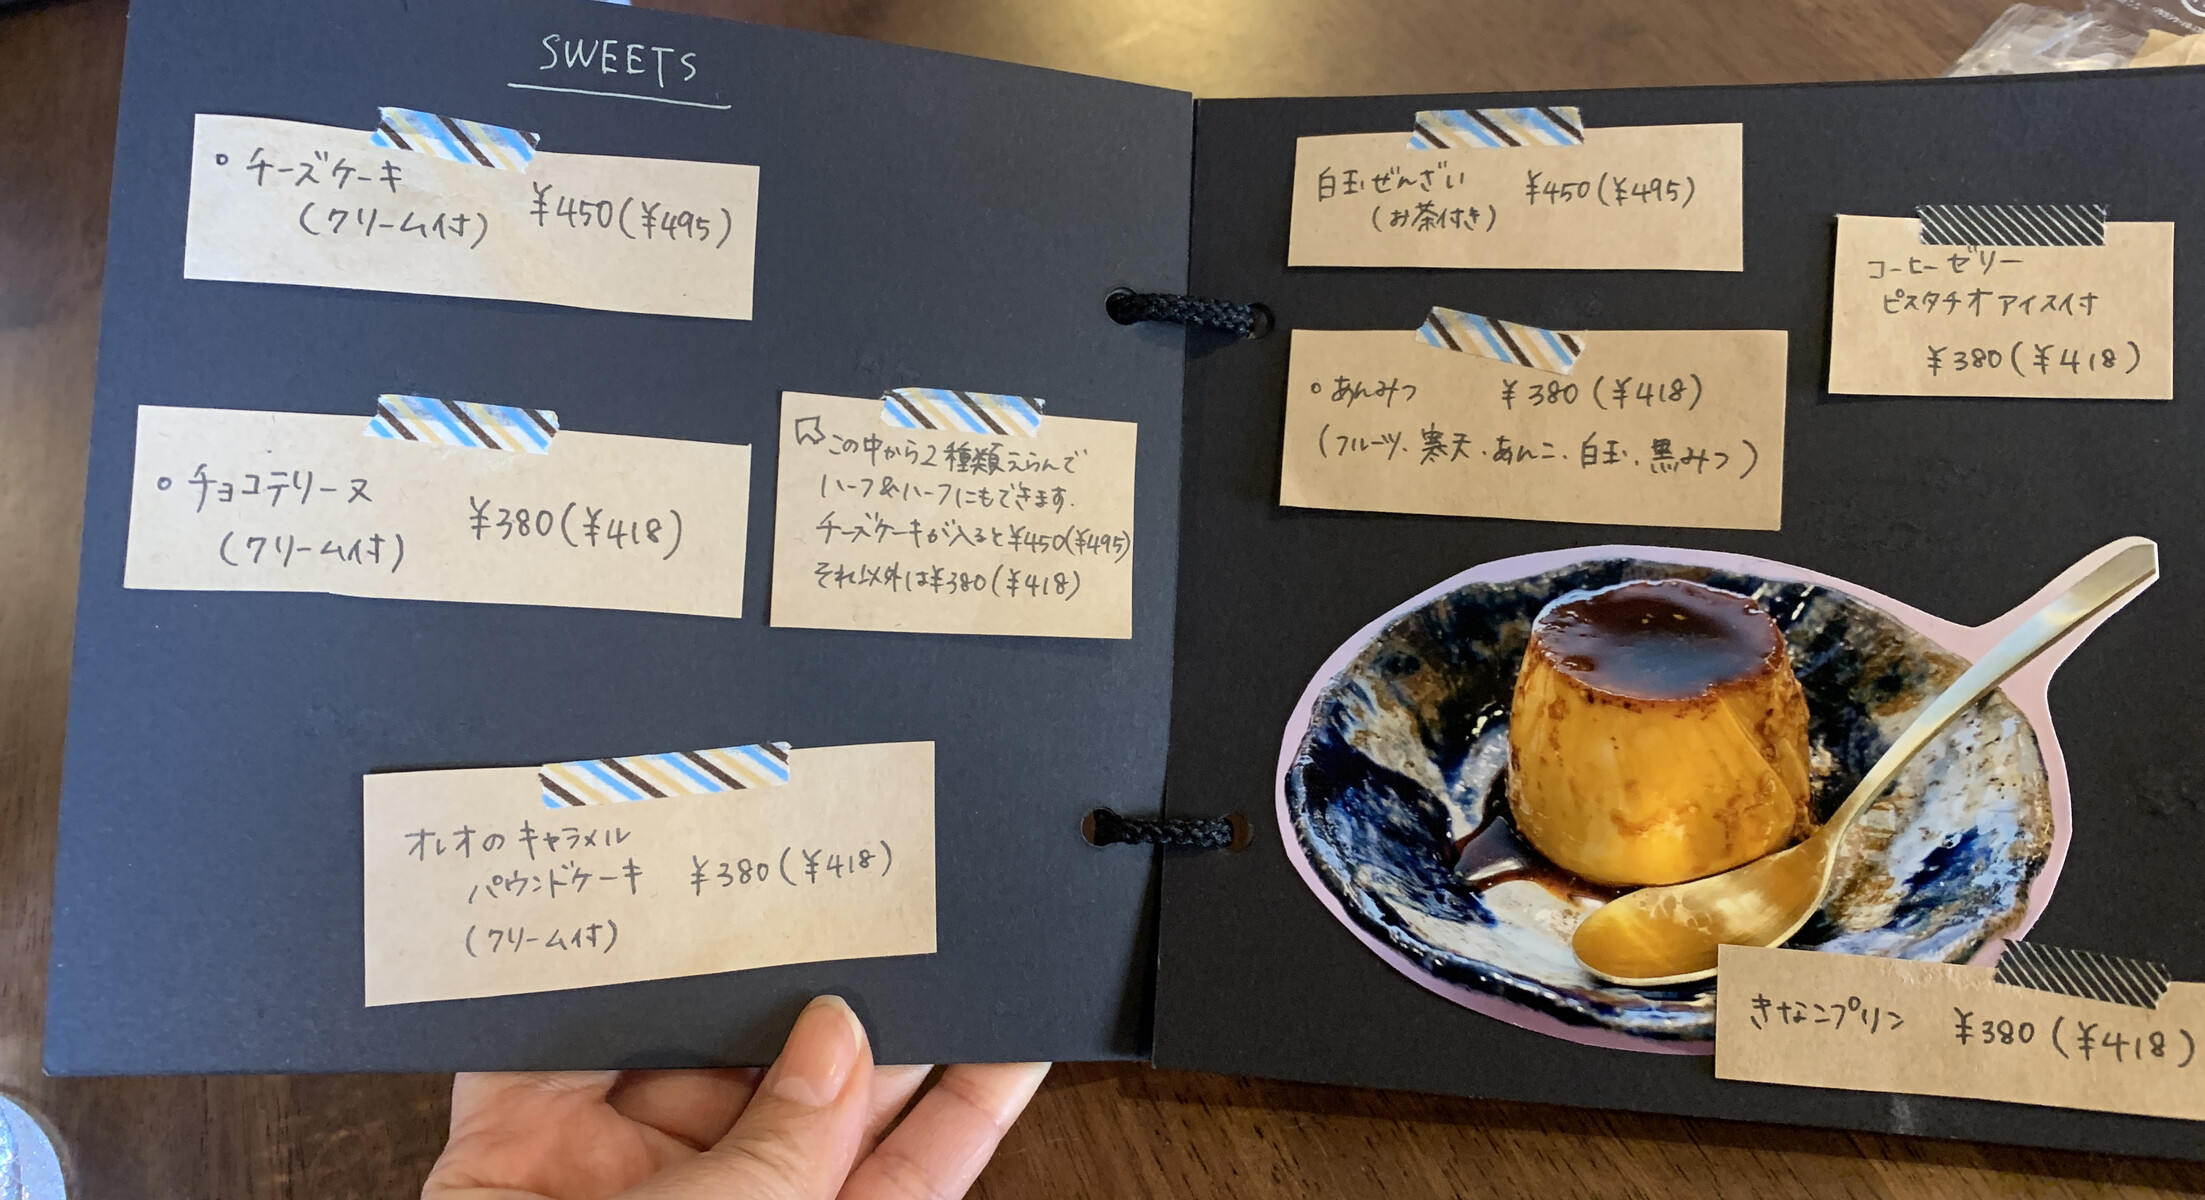 SWEETS
○ チーズケーキ
(クリーム付) ¥450(¥495)
○ チョコテリーヌ
(クリーム付) ¥380(¥418)
この中から2種類えらんで
ハーフ&ハーフにもできます.
チーズケーキが入ると¥450(¥495)
それ以外は¥380(¥418)
オレオのキャラメル
パウンドケーキ ¥380(¥418)
(クリーム付)
白玉ぜんざい ¥450(¥495)
(お茶付き)
コーヒーゼリー
ピスタチオアイス付
¥380(¥418)
○ あんみつ ¥380(¥418)
(フルーツ、寒天、あんこ、白玉、黒みつ)
きなこプリン ¥380(¥418)